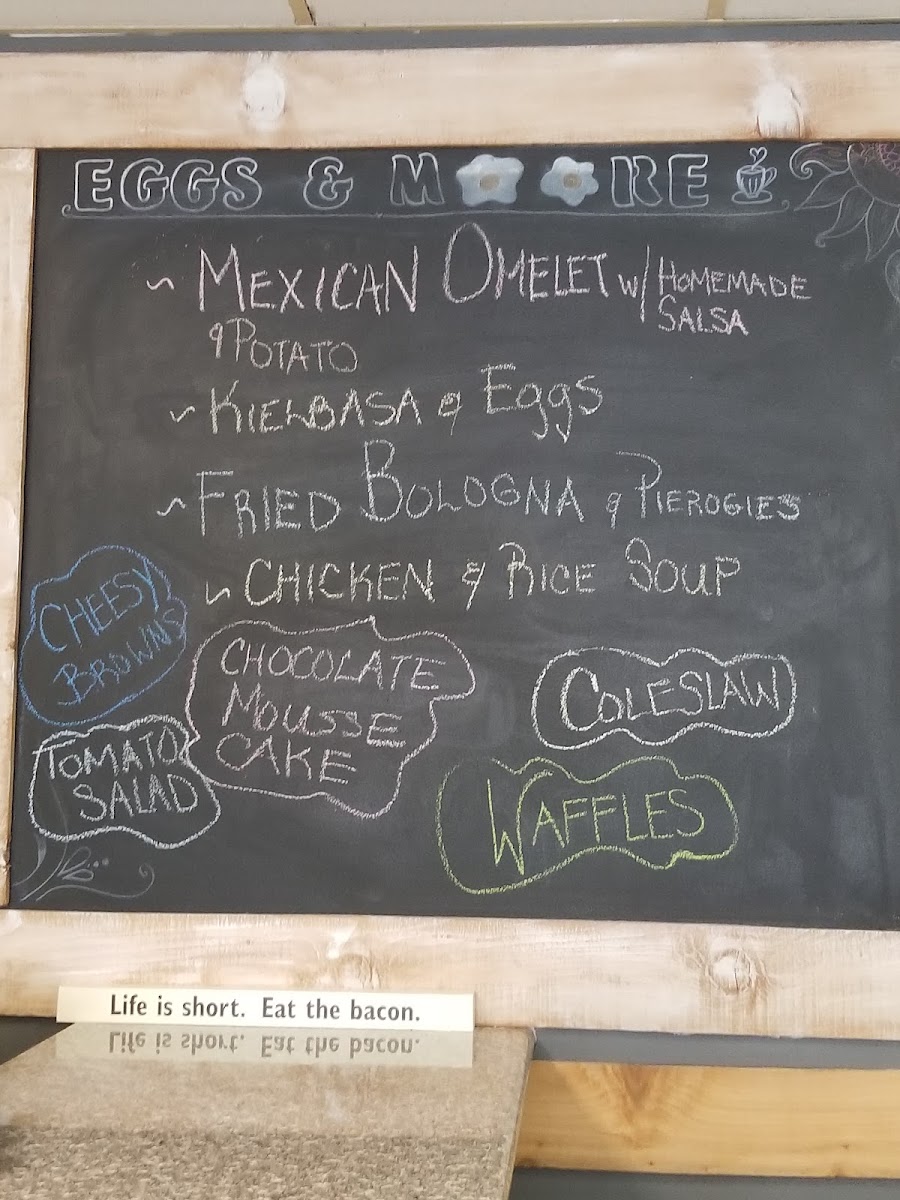 EGGS & MOORE
~ MEXICAN OMELET w/ HOMEMADE
SALSA
& POTATO
~ KIELBASA & Eggs
~ FRIED BOLOGNA & PIEROGIES
~ CHICKEN & RICE SOUP
CHEESY
BROWNS
CHOCOLATE
MOUSSE
CAKE
COLESLAW
TOMATO
SALAD
WAFFLES
Life is short. Eat the bacon.
Life is short. Eat the bacon.